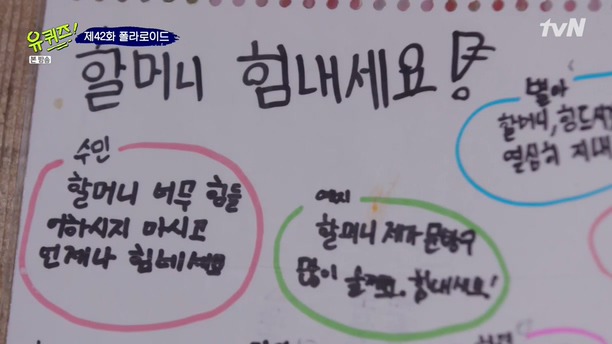 유퀴즈!
본 방송
제42화 폴라로이드
tvN
할머니 힘내세요!
수민
할머니 너무 힘들
어하지지 마시고
언제나 힘내세요
예지
할머니 제가 문방구
많이 올게요. 힘내세요!
별아
할머니, 힘드시
열심히 지내